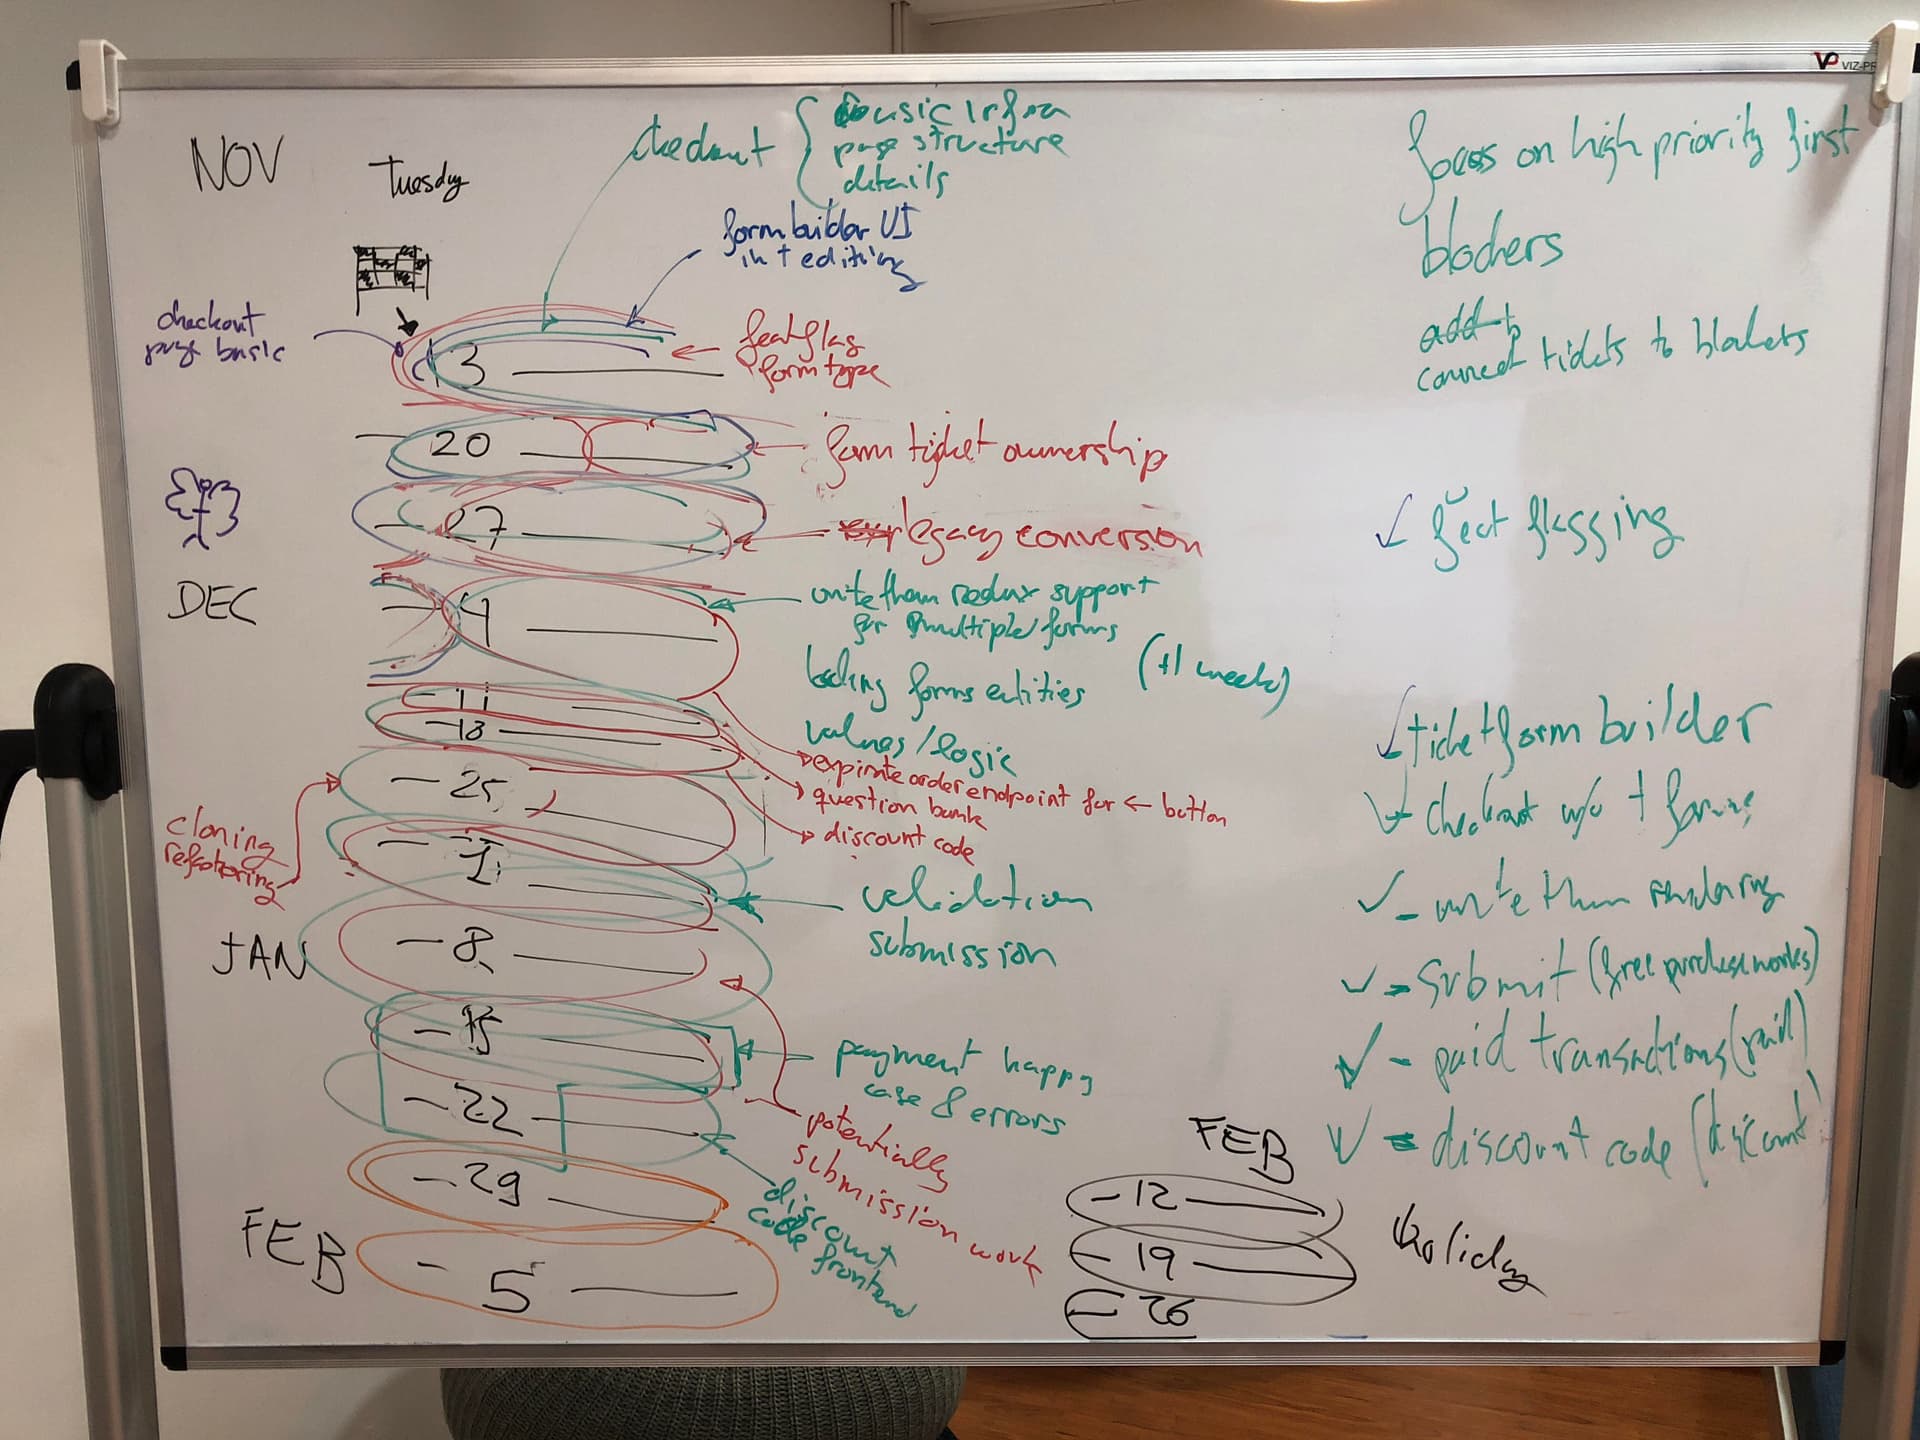 VIZ-PR
NOV
Tuesday
checkout
basic infra
page structure
details
form builder UI
int editing
checkout
page basic
13
feat flag
form type
20
form ticket ownership
27
legacy conversion
DEC
4
unite them redux support
for multiple forms
loading forms entities (+1 week)
values/logic
-11
-18
expirate order endpoint for ← button
question bank
discount code
-25
cloning
refactoring
-1
validation
submission
JAN
-8
potentially
submission work
-15
payment happy
case & errors
-22
discount
code frontend
-29
FEB
-5
FEB
-12
-19
-26
focus on high priority first
blockers
add to
connect tickets to blockers
✓ feat flagging
✓ ticket form builder
✓ checkout w/o t forms
✓ - unite them rendering
✓ - submit (free purchase works)
✓ - paid transactions (paid)
✓ - discount code (discount
holiday